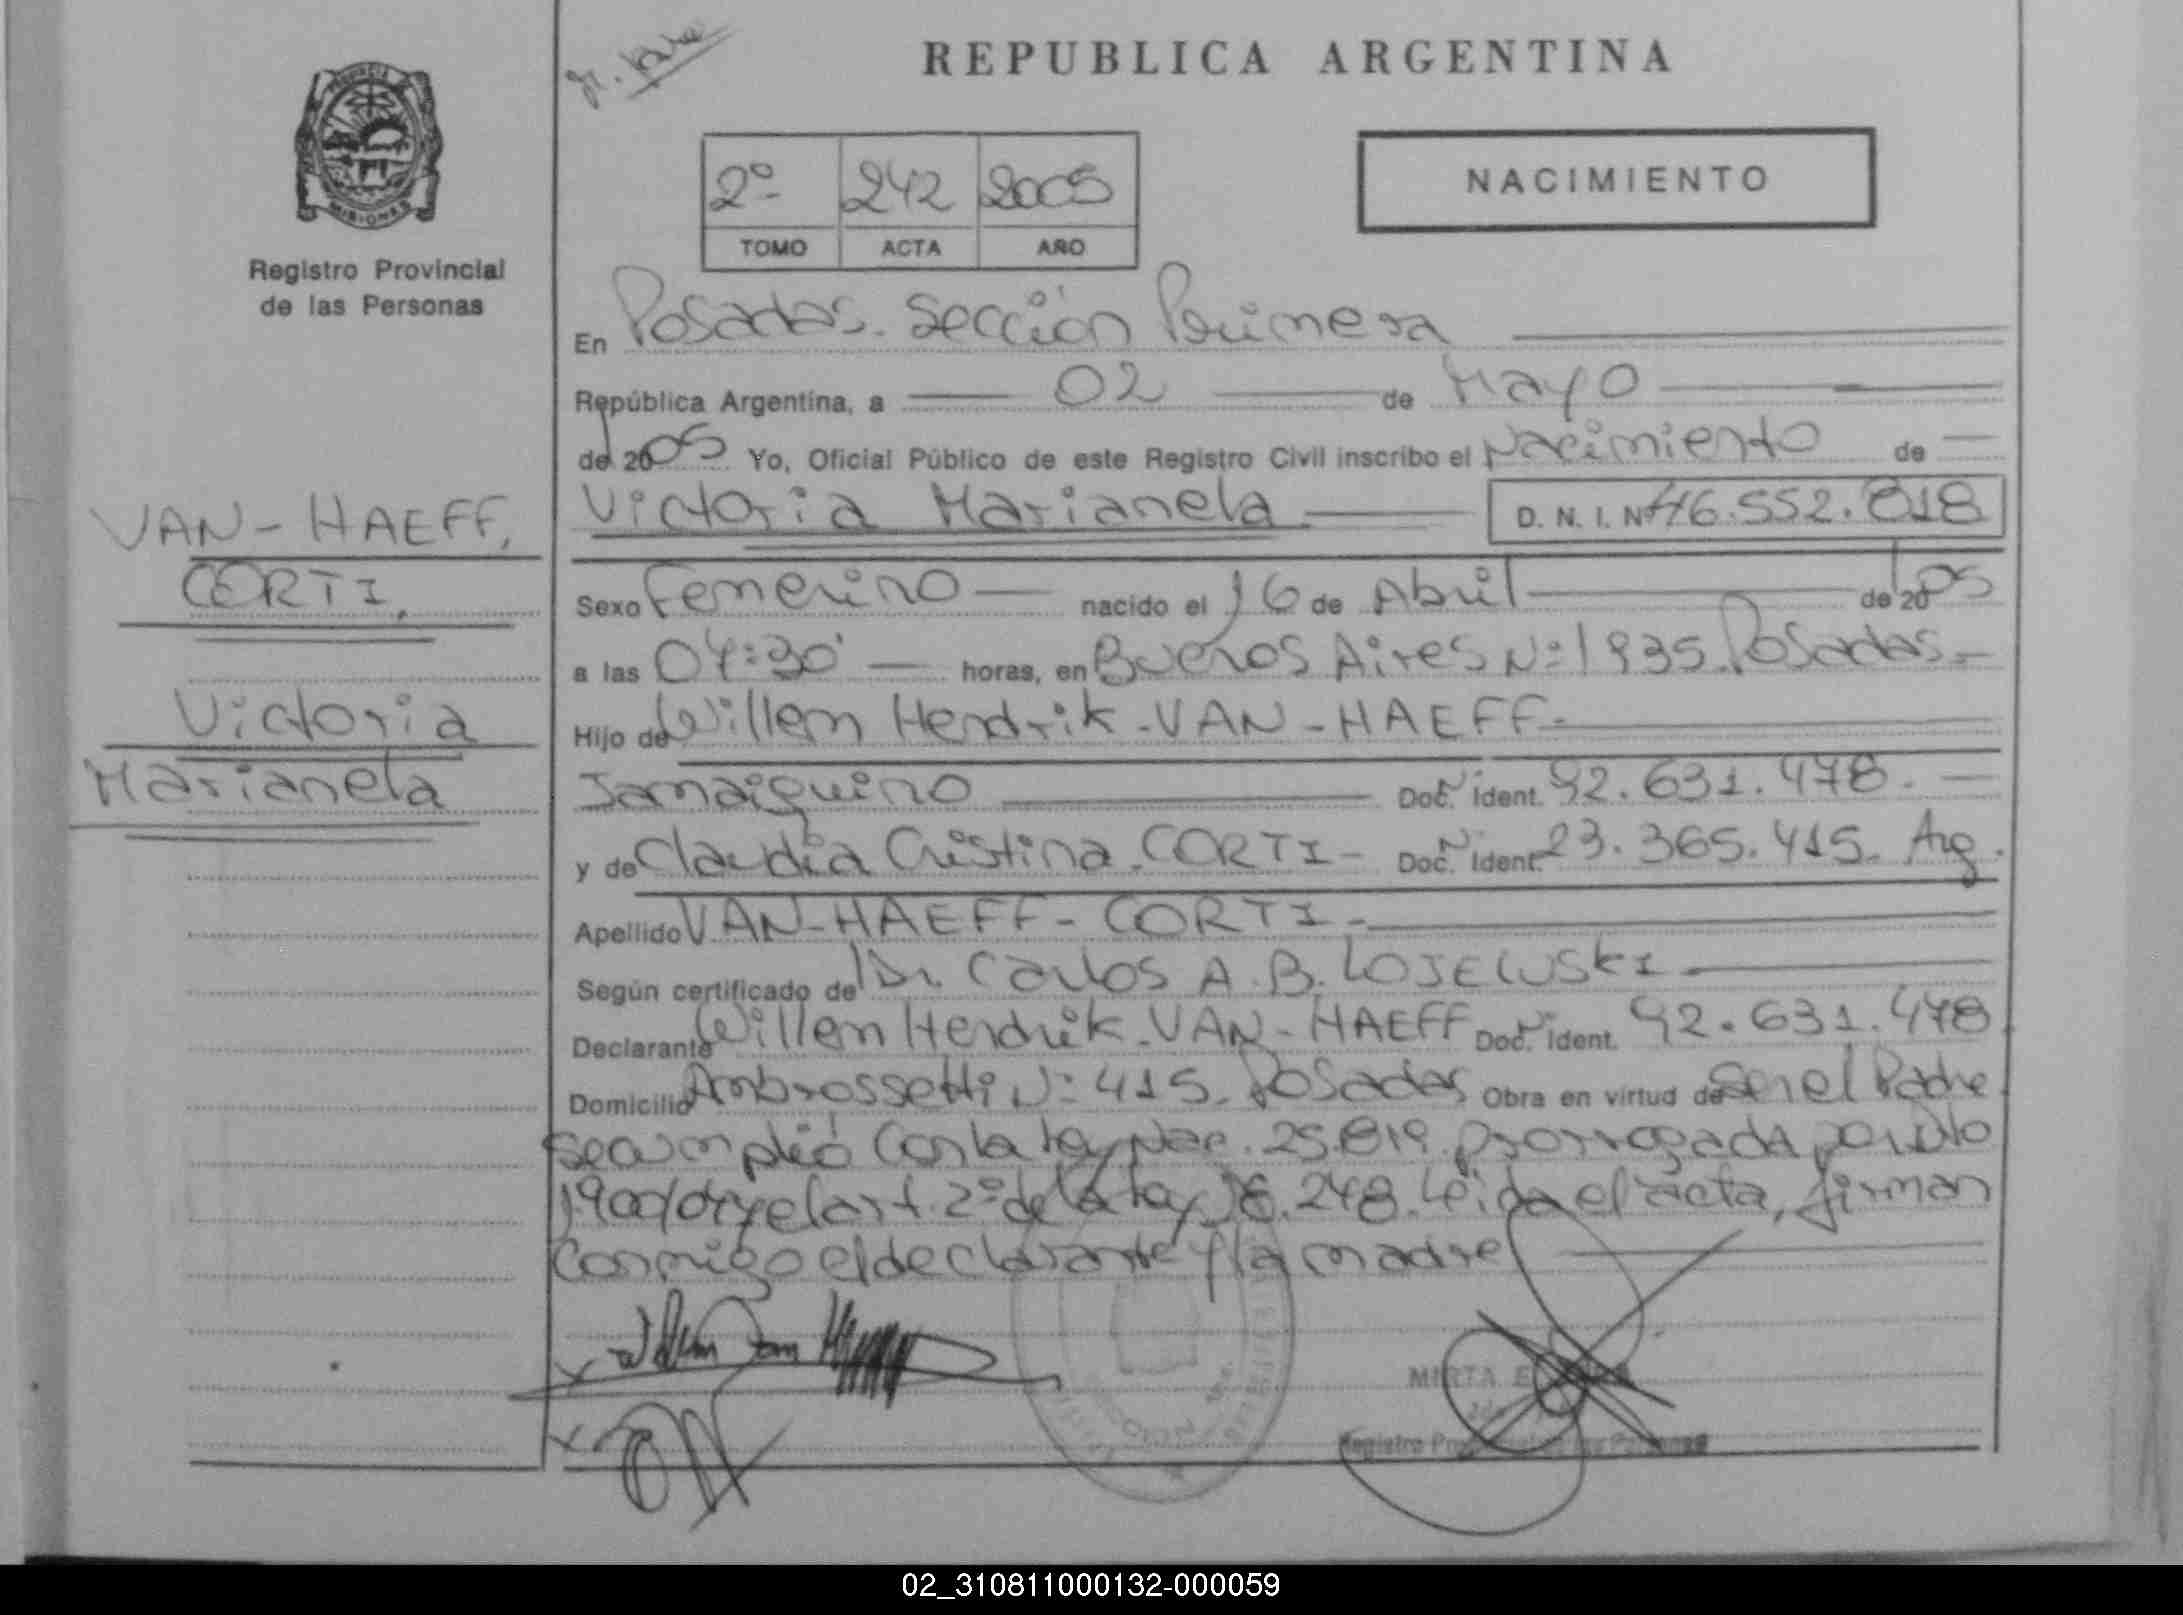 REPUBLICA ARGENTINA
PROVINCIA
MISIONES
Registro Provincial
de las Personas
2º 242 2005
TOMO ACTA AÑO
NACIMIENTO
En Posadas. Sección Primera
República Argentina, a 02 de Mayo
de 2005 Yo, Oficial Público de este Registro Civil inscribo el Nacimiento de
VAN-HAEFF,
CORTI.
Victoria
Marianela
Victoria Marianela D. N. I. Nº 46.552.818
Sexo Femenino nacido el 16 de Abril de 2005
a las 04:30' horas, en Buenos Aires Nº 1935. Posadas.
Hijo de Willem Hendrik - VAN-HAEFF.
Jamaiquino Doc. Nº Ident. 92.631.478.
y de Claudia Cristina. CORTI - Doc. Nº Ident. 23.365.415. Arg.
Apellido VAN-HAEFF - CORTI -
Según certificado de Dr. Carlos A. B. LOJEWSKI
Declarante Willem Hendrik. VAN-HAEFF Doc. Nº Ident. 92.631.478
Domicilio Ambrossetti Nº 415. Posadas Obra en virtud de Ser el Padre
se cumplió con la Ley Nac. 25.819. prorrogada por Dto
1900/04 y el art. 2º de la Ley 18.248. Leída el acta, firman
conmigo el declarante y la madre
MIRTA E.
Registro Provincial de las Personas
02_310811000132-000059